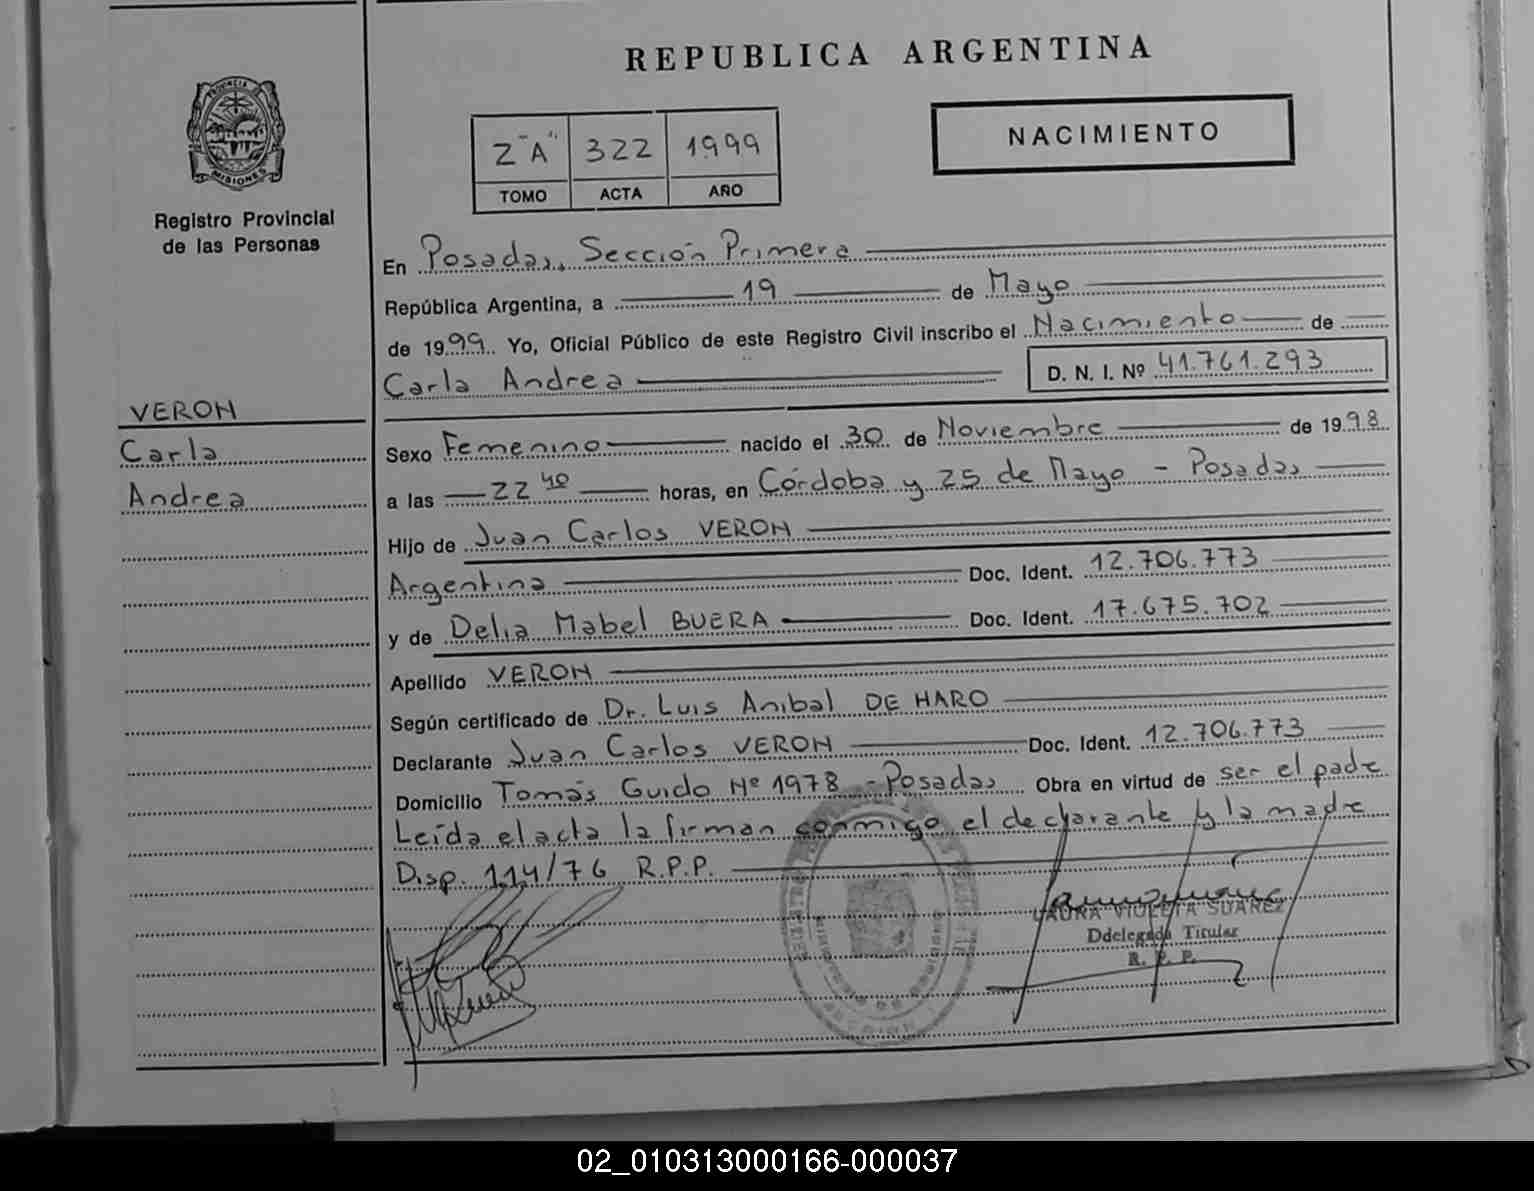 REPUBLICA ARGENTINA
PROVINCIA DE
MISIONES
Registro Provincial
de las Personas
2 "A" 322 1999
TOMO ACTA AÑO
NACIMIENTO
VERON
Carla
Andrea
En Posadas, Sección Primera
República Argentina, a 19 de Mayo
de 1999. Yo, Oficial Público de este Registro Civil inscribo el Nacimiento de
Carla Andrea D. N. I. Nº 41.761.293
Sexo Femenino nacido el 30 de Noviembre de 1998
a las 22 40 horas, en Córdoba y 25 de Mayo - Posadas
Hijo de Juan Carlos VERON
Argentina Doc. Ident. 12.706.773
y de Delia Mabel BUERA Doc. Ident. 17.675.702
Apellido VERON
Según certificado de Dr. Luis Anibal DE HARO
Declarante Juan Carlos VERON Doc. Ident. 12.706.773
Domicilio Tomás Guido Nº 1978 - Posadas Obra en virtud de ser el padre
Leída el acta la firman conmigo el declarante y la madre
Disp. 114/76 R.P.P.
LAURA VIOLETA SUAREZ
Ddelegada Titular
R. P. P.
02_010313000166-000037